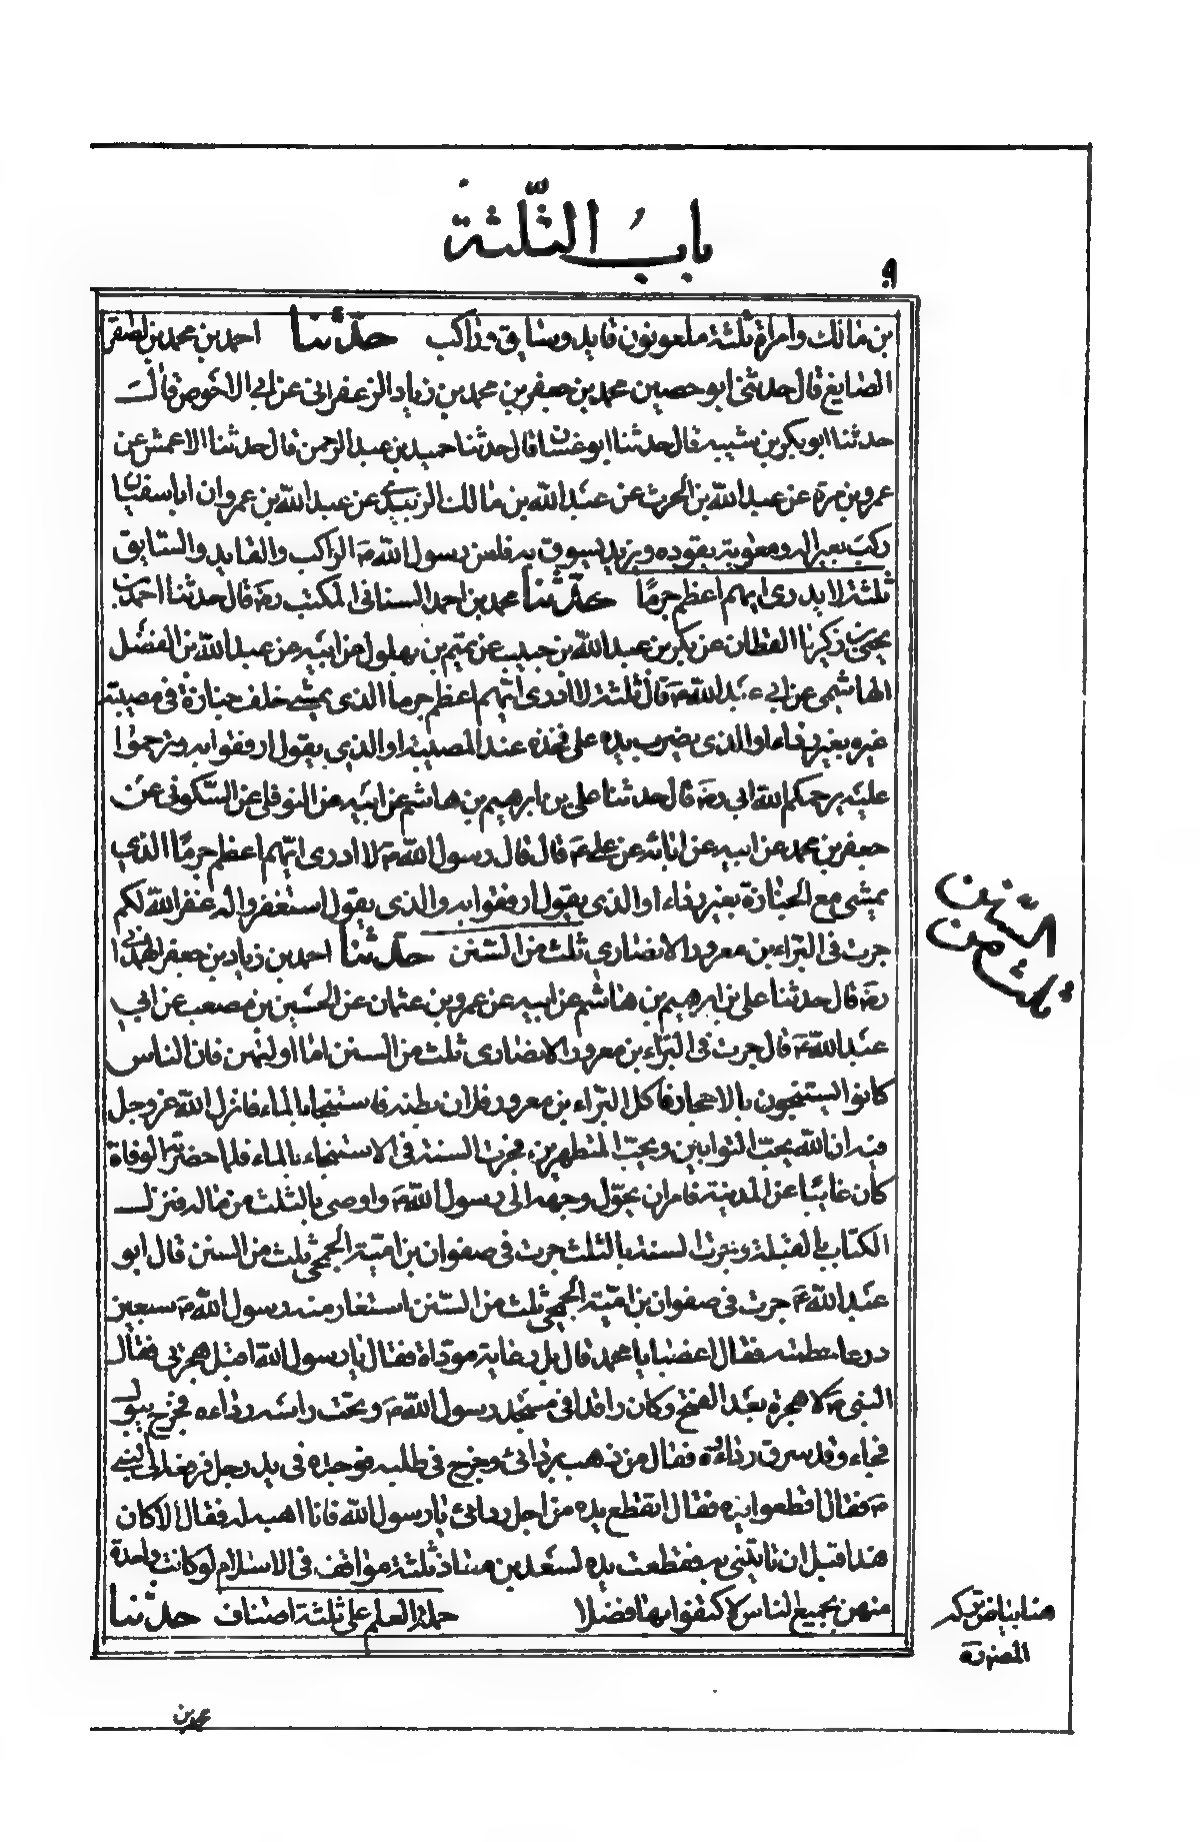 باب الثلثة
٩
بن مالك وامراة ثلثة ملعونون قايد وسايق وراكب حدثنا احمد بن محمد بن الصقر
الصايغ قال حدثنى ابو حصين محمد بن جعفر بن محمد بن زياد الزعفرانى عن ابى الاحوص قال
حدثنا ابو بكر بن شيبه قال حدثنا ابو غسان قال حدثنا حميد بن عبد الرحمن قال حدثنا الاعمش عن
عمرو بن مرة عن عبد الله بن الحرث عن عبد الله بن مالك الزبيدى عن عبد الله بن عمرو ان ابا سفيان
ركب بعيرا له ومعوية يقوده ويزيد يسوق به فلعن رسول الله ص الراكب والقايد والسايق
ثلثة لا يدرى ايهم اعظم جرمًا حدثنا محمد بن احمد السنانى المكتب رضه قال حدثنا احمد بن
يحيى بن زكريا القطان عن بكر بن عبد الله بن حبيب عن تميم بن بهلول عن ابيه عن عبد الله بن الفضل
الهاشمى عن ابى عبد الله ع قال ثلثة لا ادرى ايهم اعظم جرما الذى يمشى خلف جنازة فى مصيبة
غيره بغير رداء او الذى يضرب يده على فخذه عند المصيبة او الذى يقول ارفقوا به وترحموا
عليه يرحمكم الله ابى رضه قال حدثنا على بن ابرهيم بن هاشم عن ابيه عن النوفلى عن السكونى عن
جعفر بن محمد عن ابيه عن ابائه عن على ع قال قال رسول الله ص لا ادرى ايهم اعظم جرمًا الذى
يمشى مع الجنازة بغير رداء او الذى يقول ارفقوا به والذى يقول استغفروا له غفر الله لكم
جرت فى البراء بن معرور الانصارى ثلث من السنن حدثنا احمد بن زياد بن جعفر الهمدانى
رضه قال حدثنا على بن ابرهيم بن هاشم عن ابيه عن عمرو بن عثمان عن الحسين بن مصعب عن ابى
عبد الله ع قال جرت فى البراء بن معرور الانصارى ثلث من السنن اما اوليهن فان الناس
كانوا يستنجون بالاحجار فاكل البراء بن معرور فلان بطنه فاستنجا بالماء فانزل الله عز وجل
فيه ان الله يحب التوابين ويحب المتطهرين فجرت السنة فى الاستنجاء بالماء فلما حضرته الوفاة
كان غايبًا عن المدينة فامر ان يحول وجهه الى رسول الله ص واوصى بالثلث من ماله فنزل
الكتاب بالقبلة وجرت السنة بالثلث جرت فى صفوان بن امية الجمحى ثلث من السنن قال ابو
عبد الله ع جرت فى صفوان بن امية الجمحى ثلث من السنن استعار منه رسول الله ص سبعين
درعا حطمية فقال اغصبا يا محمد قال بل عارية موداة فقال يا رسول الله اقبل هجرتى فقال
النبى ص لا هجرة بعد الفتح وكان راقدا فى مسجد رسول الله ص وتحت راسه رداءه فخرج يبول
فجاء وقد سرق رداؤه فقال من ذهب بردائى وخرج فى طلبه فوجده فى يد رجل فرفعه الى النبى
ص فقال اقطعوا يده فقال اتقطع يده من اجل ردائى يا رسول الله فانا اهبه له فقال الا كان
هذا قبل ان تاتينى به فقطعت يده لسعد بن معاذ ثلثة مواقف فى الاسلام لو كانت واحدة
منهن بجميع الناس لاكتفوا بها فضلا حملة العلم على ثلثة اصناف حدثنا
السنن
ثلث من
هنا بياض
محمد بن